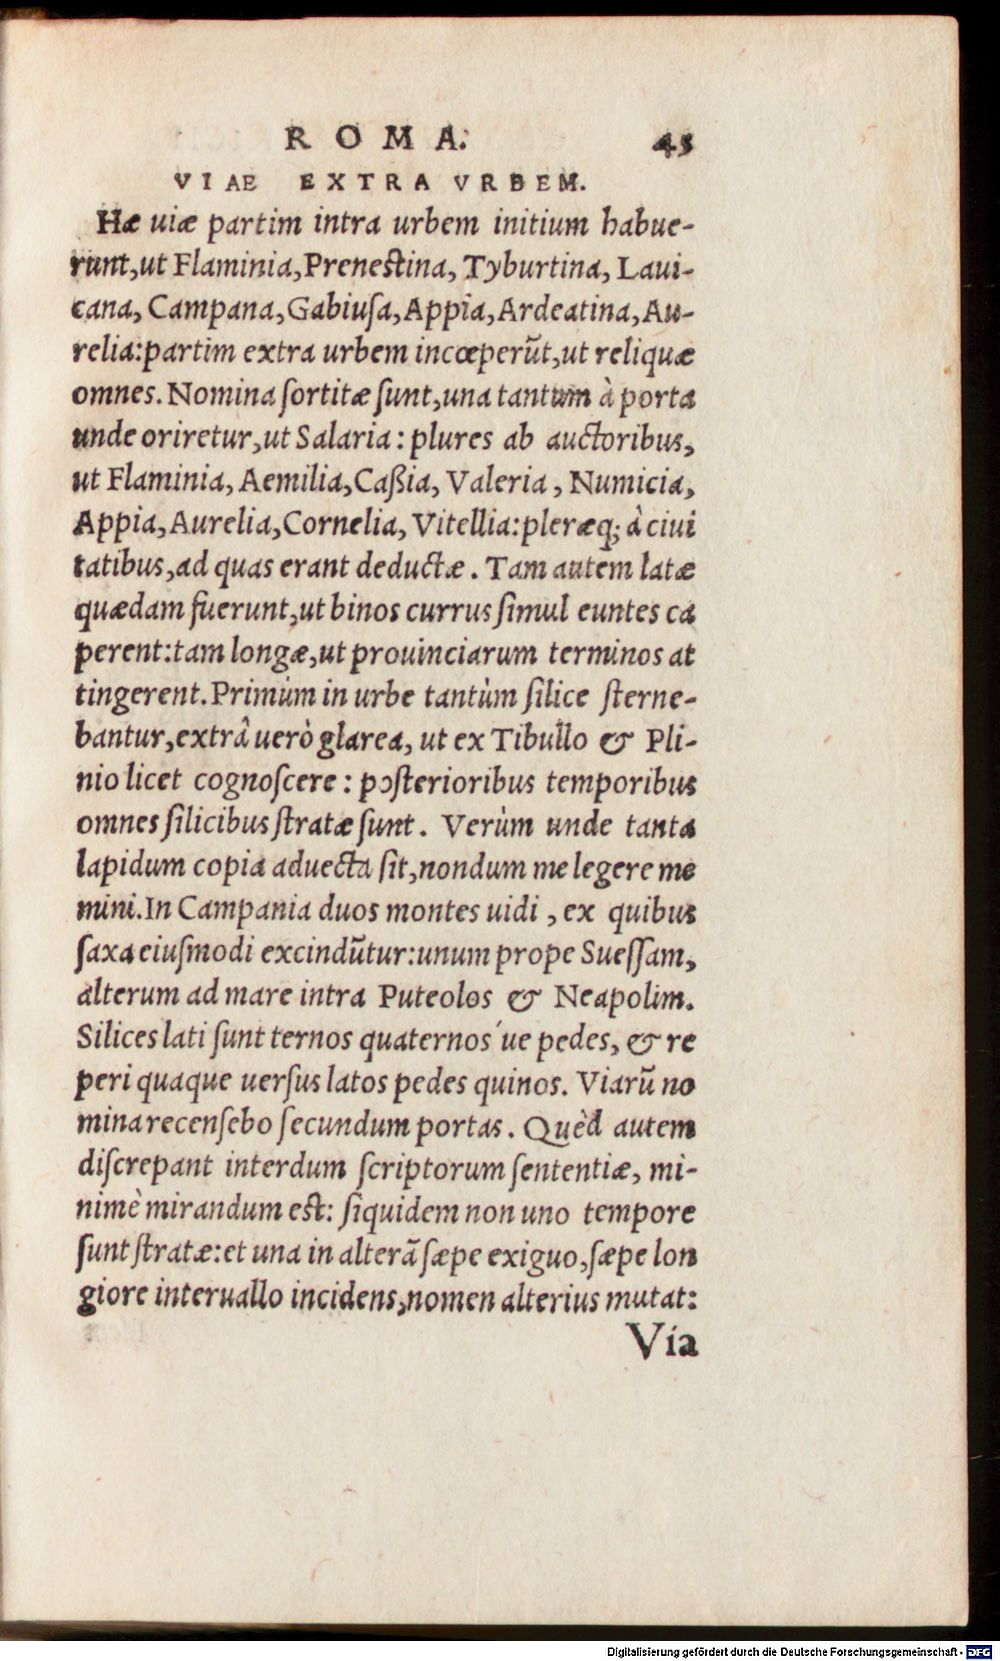 ROMA. 45
VIAE EXTRA VRBEM.
Hæ uiæ partim intra urbem initium habue-
runt,ut Flaminia,Prenestina, Tyburtina, Laui-
cana, Campana,Gabiuſa,Appia,Ardeatina,Au-
relia:partim extra urbem incœperūt,ut reliquæ
omnes. Nomina ſortitæ ſunt,una tantum à porta
unde oriretur,ut Salaria : plures ab auctoribus,
ut Flaminia, Aemilia,Caßia, Valeria, Numicia,
Appia,Aurelia,Cornelia, Vitellia:pleræq; à ciui
tatibus,ad quas erant deductæ. Tam autem latæ
quædam fuerunt,ut binos currus ſimul euntes ca
perent:tam longæ,ut prouinciarum terminos at
tingerent.Primùm in urbe tantùm ſilice ſterne-
bantur,extrâ uerò glarea, ut ex Tibullo & Pli-
nio licet cognoſcere : poſterioribus temporibus
omnes ſilicibus ſtratæ ſunt. Verùm unde tanta
lapidum copia aduecta ſit,nondum me legere me
mini.In Campania duos montes uidi, ex quibus
ſaxa eiuſmodi excindūtur:unum prope Sueſſam,
alterum ad mare intra Puteolos & Neapolim.
Silices lati ſunt ternos quaternos ́ue pedes, & re
peri quaque uerſus latos pedes quinos. Viarū no
mina recenſebo ſecundum portas. Quèd autem
diſcrepant interdum ſcriptorum ſententiæ, mi-
nimè mirandum est: ſiquidem non uno tempore
ſunt ſtratæ:et una in alterā ſæpe exiguo,ſæpe lon
giore interuallo incidens,nomen alterius mutat:
Via
Digitalisierung gefördert durch die Deutsche Forschungsgemeinschaft - DFG